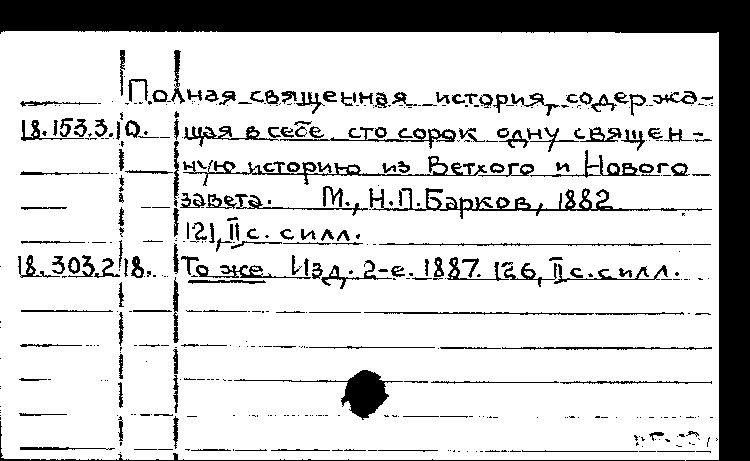 Полная священная история, содержа-
18.153.3.10. щая в себе сто сорок одну священ-
ную историю из Ветхого и Нового
завета. М., Н.П.Барков, 1882
121, II с. с илл.
18.303.2.18. То же. Изд. 2-е. 1887. 126, II с. с илл.